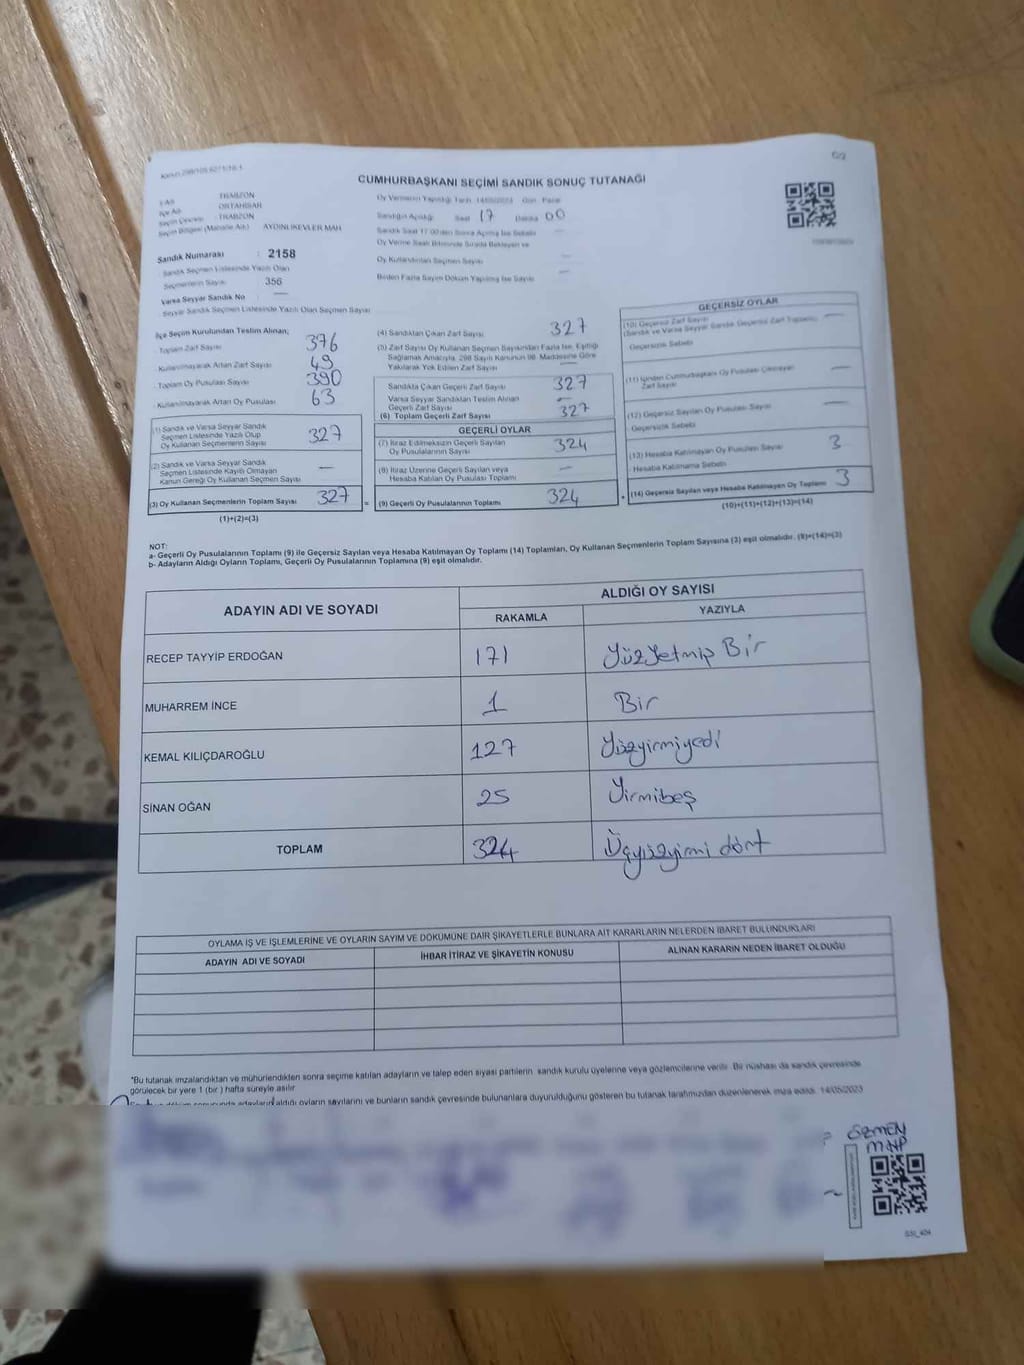 CUMHURBAŞKANI SEÇİMİ SANDIK SONUÇ TUTANAĞI
İl Adı : TRABZON
İlçe Adı : ORTAHİSAR
Seçim Çevresi : TRABZON
Seçim Bölgesi (Mahalle Adı) : AYDINLIKEVLER MAH
Sandık Numarası : 2158
Sandık Seçmen Listesinde Yazılı Olan
Seçmenlerin Sayısı : 356
Varsa Seyyar Sandık No : —
Seyyar Sandık Seçmen Listesinde Yazılı Olan Seçmen Sayısı
Oy Vermenin Yapıldığı Tarih 14/05/2023 Gün Pazar
Sandığın Açıldığı Saat 17 Dakika 00
Sandık Saat 17.00'den Sonra Açılmış İse Sebebi —
Oy Verme Saati Bitiminde Sırada Bekleyen ve
Oy Kullandırılan Seçmen Sayısı —
Birden Fazla Sayım Döküm Yapılmış İse Sayısı —
İlçe Seçim Kurulundan Teslim Alınan;
Toplam Zarf Sayısı 376
Kullanılmayarak Artan Zarf Sayısı 49
Toplam Oy Pusulası Sayısı 390
Kullanılmayarak Artan Oy Pusulası 63
(1) Sandık ve Varsa Seyyar Sandık
Seçmen Listesinde Yazılı Olup
Oy Kullanan Seçmenlerin Sayısı 327
(2) Sandık ve Varsa Seyyar Sandık
Seçmen Listesinde Kayıtlı Olmayan
Kanun Gereği Oy Kullanan Seçmen Sayısı —
(3) Oy Kullanan Seçmenlerin Toplam Sayısı 327 =
(1)+(2)=(3)
(4) Sandıktan Çıkan Zarf Sayısı 327
(5) Zarf Sayısı Oy Kullanan Seçmen Sayısından Fazla İse, Eşitliği
Sağlamak Amacıyla, 298 Sayılı Kanunun 98. Maddesine Göre
Yakılarak Yok Edilen Zarf Sayısı —
Sandıkta Çıkan Geçerli Zarf Sayısı 327
Varsa Seyyar Sandıktan Teslim Alınan
Geçerli Zarf Sayısı —
(6) Toplam Geçerli Zarf Sayısı 327
GEÇERLİ OYLAR
(7) İtiraz Edilmeksizin Geçerli Sayılan
Oy Pusulalarının Sayısı 324
(8) İtiraz Üzerine Geçerli Sayılan veya
Hesaba Katılan Oy Pusulası Toplamı —
(9) Geçerli Oy Pusulalarının Toplamı 324 +
GEÇERSİZ OYLAR
(10) Geçersiz Zarf Sayısı
(Sandık ve Varsa Seyyar Sandık Geçersiz Zarf Toplamı) —
Geçersizlik Sebebi
(11) İçinden Cumhurbaşkanı Oy Pusulası Çıkmayan
Zarf Sayısı —
(12) Geçersiz Sayılan Oy Pusulası Sayısı —
Geçersizlik Sebebi
(13) Hesaba Katılmayan Oy Pusulası Sayısı 3
Hesaba Katılmama Sebebi
(14) Geçersiz Sayılan veya Hesaba Katılmayan Oy Toplamı 3
(10)+(11)+(12)+(13)=(14)
NOT:
a- Geçerli Oy Pusulalarının Toplamı (9) ile Geçersiz Sayılan veya Hesaba Katılmayan Oy Toplamı (14) Toplamları, Oy Kullanan Seçmenlerin Toplam Sayısına (3) eşit olmalıdır. (9)+(14)=(3)
b- Adayların Aldığı Oyların Toplamı, Geçerli Oy Pusulalarının Toplamına (9) eşit olmalıdır.
ADAYIN ADI VE SOYADI ALDIĞI OY SAYISI
RAKAMLA YAZIYLA
RECEP TAYYİP ERDOĞAN 171 YüzYetmiş Bir
MUHARREM İNCE 1 Bir
KEMAL KILIÇDAROĞLU 127 Yüzyirmiyedi
SİNAN OĞAN 25 Yirmibeş
TOPLAM 324 Üçyüzyirmi dört
OYLAMA İŞ VE İŞLEMLERİNE VE OYLARIN SAYIM VE DÖKÜMÜNE DAİR ŞİKAYETLERLE BUNLARA AİT KARARLARIN NELERDEN İBARET BULUNDUKLARI
ADAYIN ADI VE SOYADI İHBAR İTİRAZ VE ŞİKAYETİN KONUSU ALINAN KARARIN NEDEN İBARET OLDUĞU
*Bu tutanak imzalandıktan ve mühürlendikten sonra seçime katılan adayların ve talep eden siyasi partilerin sandık kurulu üyelerine veya gözlemcilerine verilir. Bir nüshası da sandık çevresinde
görülecek bir yere 1 (bir) hafta süreyle asılır
adayların aldığı oyların sayılarını ve bunların sandık çevresinde bulunanlara duyurulduğunu gösteren bu tutanak tarafımızdan düzenlenerek imza edildi. 14/05/2023
ÖZMEN
MHP